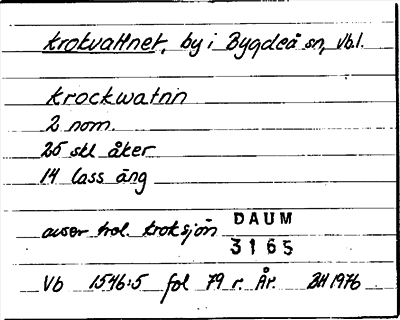 Krokvattnet, by i Bygdeå sn, Vbl.
Krockwatnn
2 nom.
25 skl åker
14 lass äng
avser trol. Kroksjön DAUM
3165
Vb 1546:5 fol 79 r. År. BH 1976